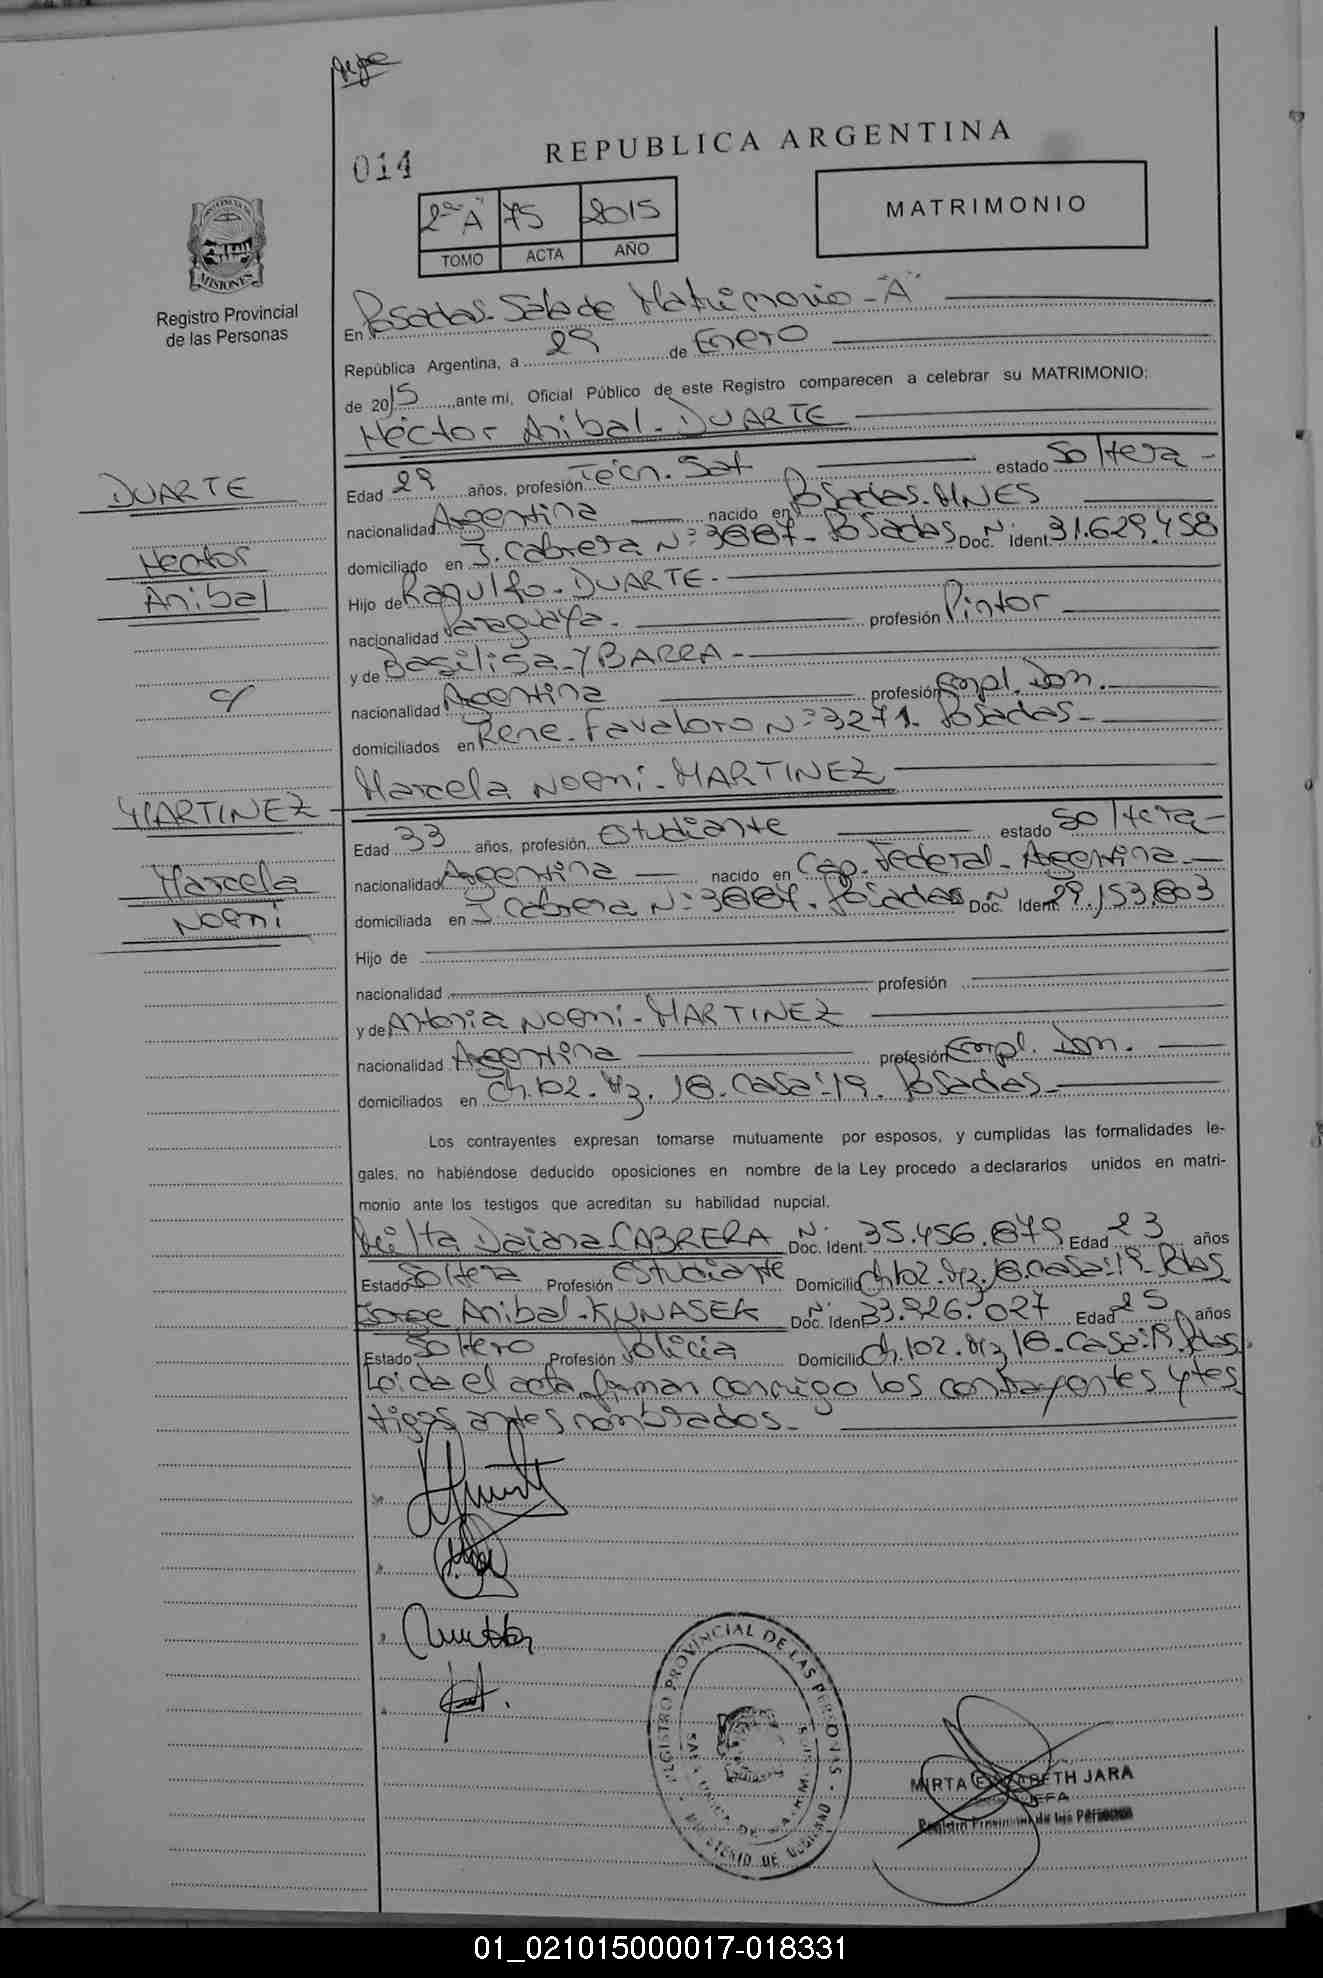 014
REPUBLICA ARGENTINA
2º "A" 75 2015
TOMO ACTA AÑO
MATRIMONIO
MISIONES
Registro Provincial
de las Personas
En Posadas. Sala de Matrimonio - "A"
República Argentina, a 29 de Enero
de 2015 ante mí, Oficial Público de este Registro comparecen a celebrar su MATRIMONIO:
Héctor Anibal - DUARTE
DUARTE
Hector
Anibal
c/
MARTINEZ
Marcela
Noemi
Edad 29 años, profesión Técn. Sat estado Soltera -
nacionalidad Argentina nacido en Posadas. MNES
domiciliado en J. Cabrera Nº 3887 - Posadas Doc. Nº Ident. 31.629.458
Hijo de DUARTE -
nacionalidad Paraguaya - profesión Pintor
y de Basilisa - YBARRA -
nacionalidad Argentina profesión Empl. Dom.
domiciliados en Rene - Favaloro Nº 3271 - Posadas -
Marcela Noemi - MARTINEZ
Edad 33 años, profesión Estudiante estado Soltera -
nacionalidad Argentina nacido en Cap. Federal - Argentina -
domiciliada en J. Cabrera Nº 3887 - Posadas Doc. Nº Ident. 29.153.803
Hijo de
nacionalidad profesión
y de Noemi - MARTINEZ
nacionalidad Argentina profesión Empl. Dom.
domiciliados en Ch. 102. Mz. 18. Casa: 19. Posadas -
Los contrayentes expresan tomarse mutuamente por esposos, y cumplidas las formalidades le-
gales, no habiéndose deducido oposiciones en nombre de la Ley procedo a declararlos unidos en matri-
monio ante los testigos que acreditan su habilidad nupcial.
Daiana CABRERA Doc. Nº Ident. 35.456.879 Edad 23 años
Estado Soltera Profesión Estudiante Domicilio Ch. 102. Mz. 18. Casa: 19. Pdas
Jorge Anibal - KUNASEK Doc. Nº Ident. 33.926.027 Edad 25 años
Estado Soltero Profesión Policia Domicilio Ch. 102. Mz 18. Casa: 19. Pdas.
Leida el acta, firman conmigo los contrayentes y tes
tigos antes nombrados -
REGISTRO PROVINCIAL DE LAS PERSONAS - MINISTERIO DE GOBIERNO
MIRTA ELIZABETH JARA
JEFA
Registro Provincial de las Personas
01_021015000017-018331